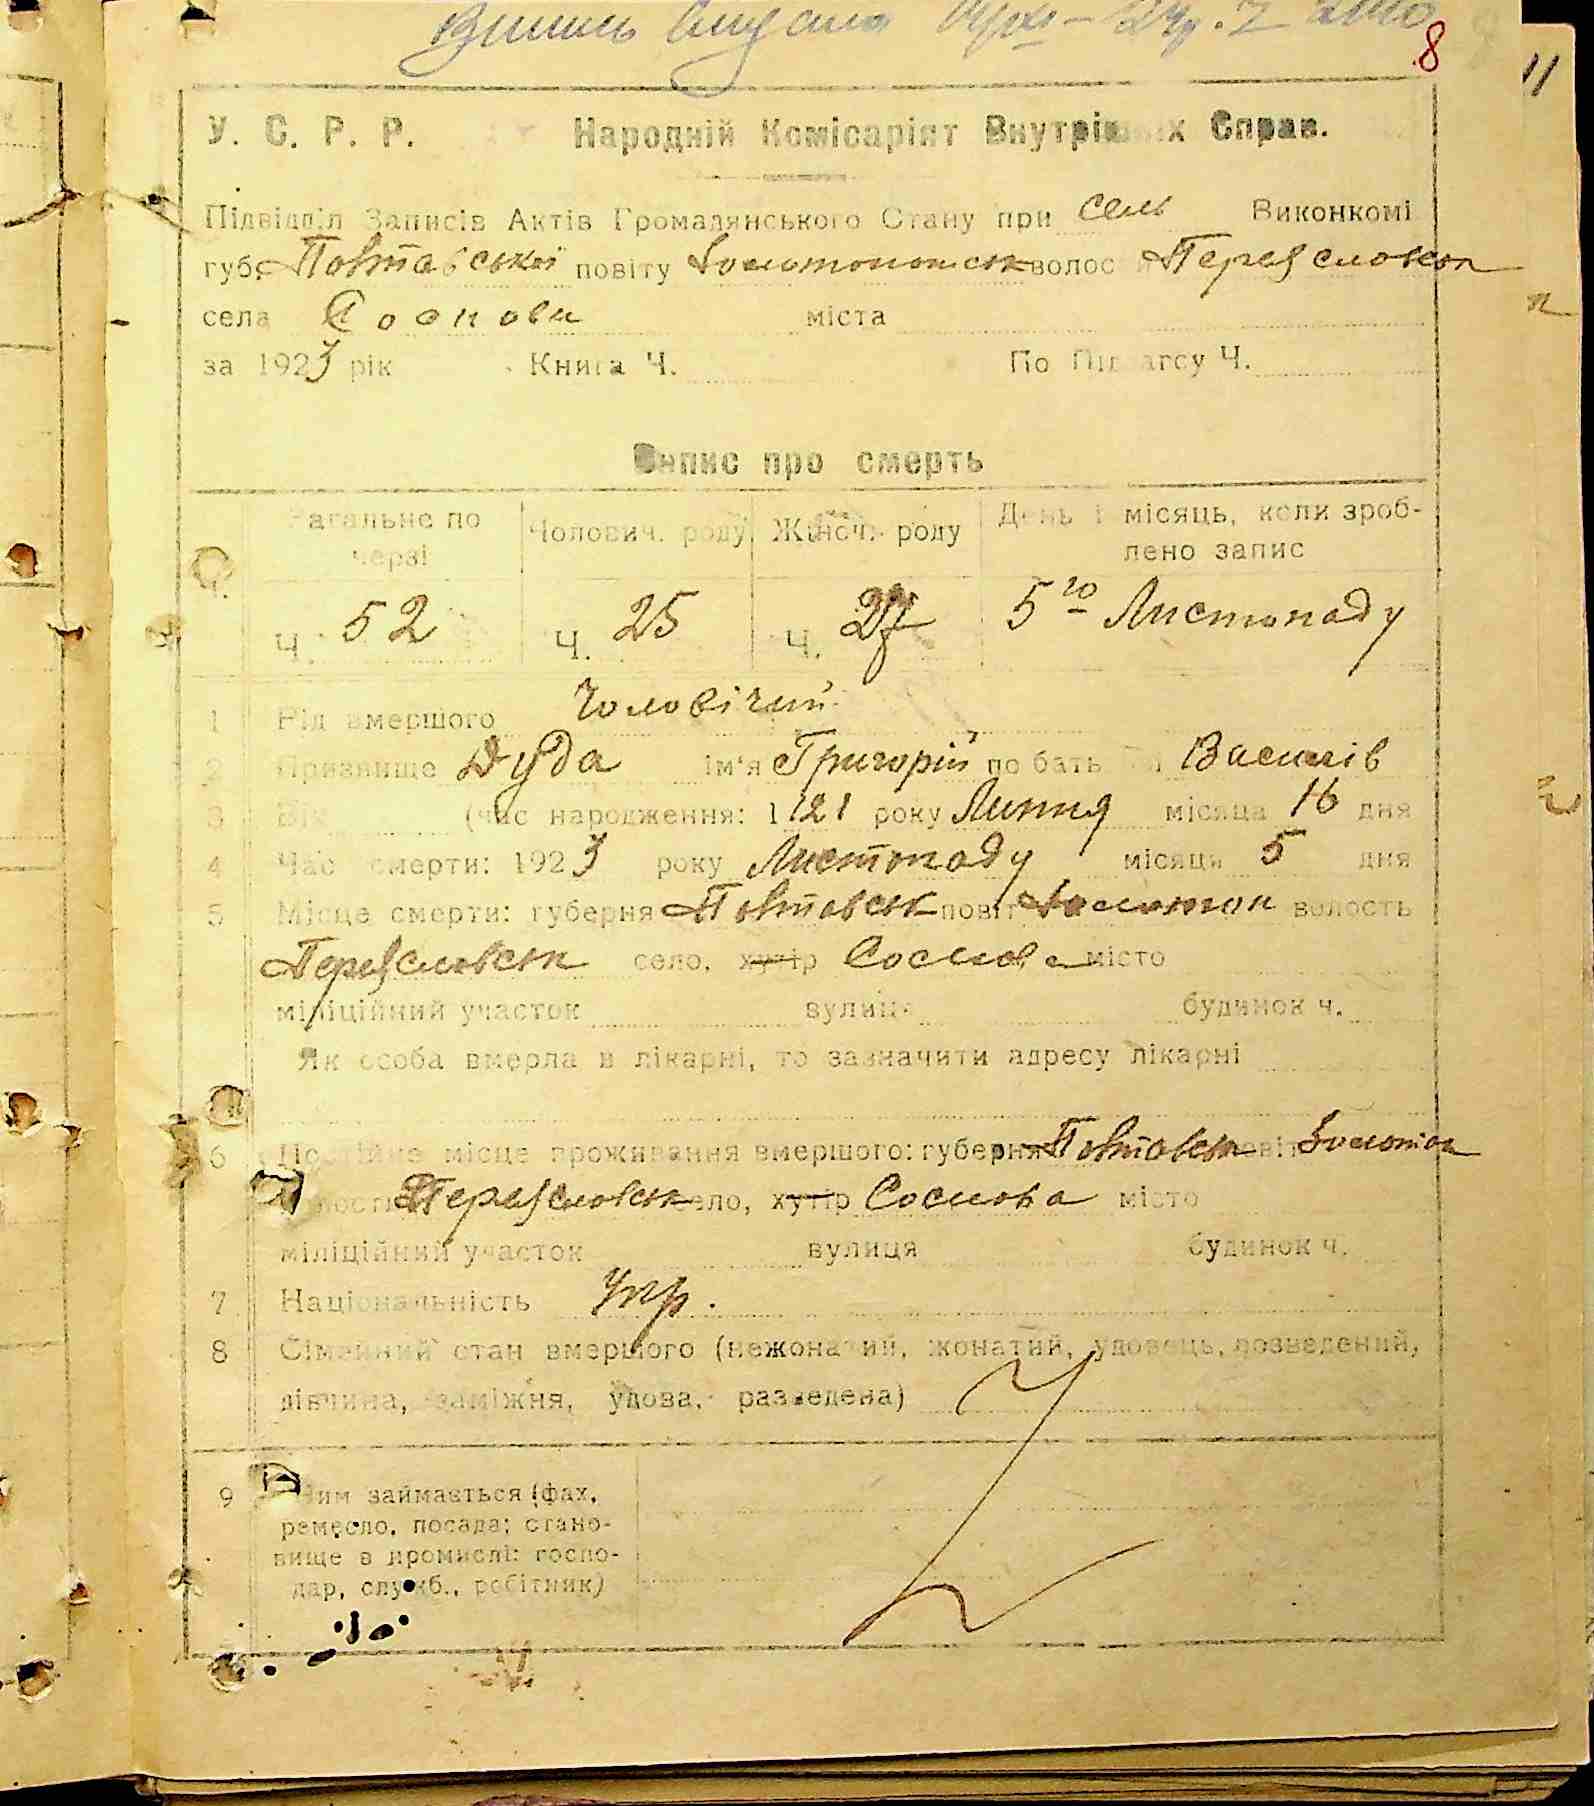 8
11
У. С. Р. Р. Народній Комісаріят Внутрішніх Справ.
Підвідділ Записів Актів Громадянського Стану при Сель Виконкомі
губ. Полтавської повіту Золотоношськ волос Переяславськ
села Соснови міста
за 1923 рік Книга Ч. По Підзагсу Ч.
Запис про смерть
Загальне по черзі
Чолович. роду
Жіноч. роду
День і місяць, коли зроблено запис
Ч. 52 Ч. 25 Ч. 27 5го Листопаду
1 Рід вмершого Чоловічий
2 Призвище Дуда ім'я Григорій по батькові Василів
3 Вік (час народження: 1921 року Липня місяца 16 дня
4 Час смерти: 1923 року Листопаду місяця 5 дня
5 Місце смерти: губерня Полтавськ повіт Золотон волость
Переяславськ село, хутір Соснова місто
міліційний участок вулиця будинок ч.
Як особа вмерла в лікарні, то зазначити адресу лікарні
6 Постійне місце проживання вмершого: губерня Полтавськ повіт Золотон
волость Переяславськ село, хутір Соснова місто
міліційний участок вулиця будинок ч.
7 Національність Укр.
8 Сімейний стан вмершого (нежонатий, жонатий, удовець, розведений,
дівчина, заміжня, удова, разведена)
9 Чим займається (фах,
ремесло, посада; стано-
вище в промислі: госпо-
дар, служб., робітник)